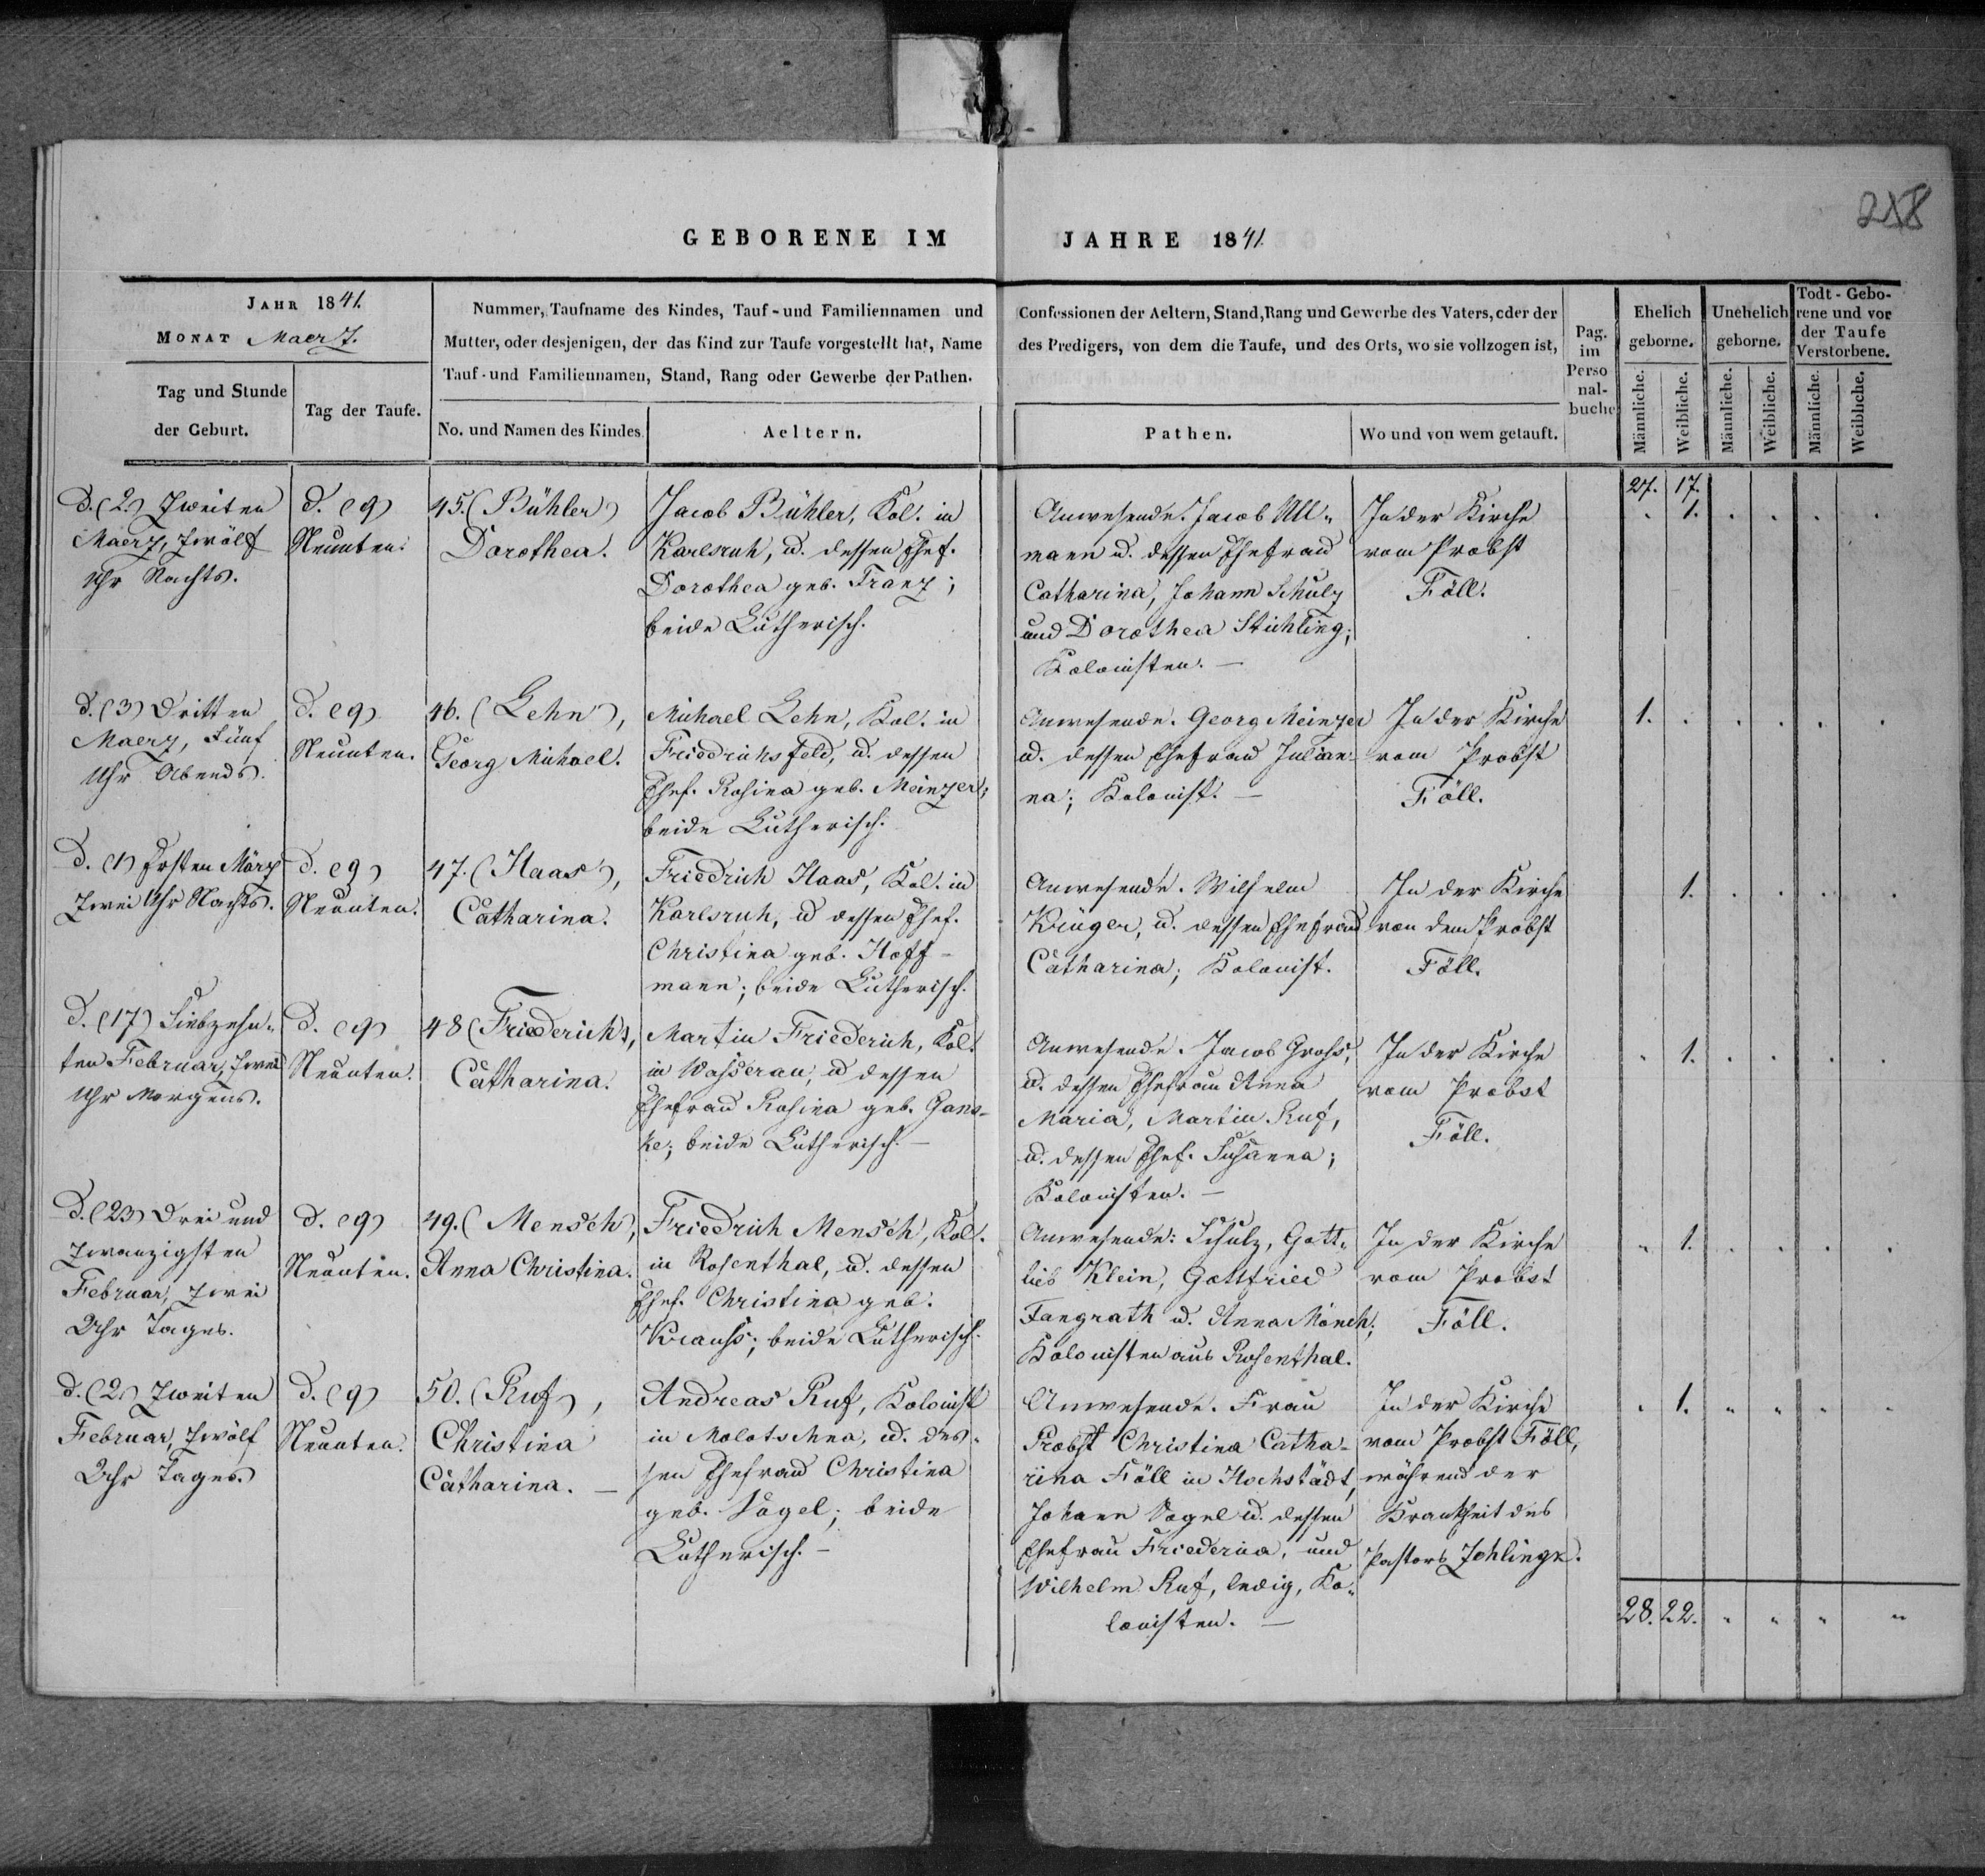 258
GEBORENE IM JAHRE 1841.
JAHR 1841.
MONAT Maerz.
Tag und Stunde
der Geburt.
Tag der Taufe.
Nummer, Taufname des Kindes, Tauf- und Familiennamen und
Mutter, oder desjenigen, der das Kind zur Taufe vorgestellt hat, Name
Tauf- und Familiennamen, Stand, Rang oder Gewerbe der Pathen.
No. und Namen des Kindes
Aeltern.
Confessionen der Aeltern, Stand, Rang und Gewerbe des Vaters, oder der
des Predigers, von dem die Taufe, und des Orts, wo sie vollzogen ist,
Pathen.
Wo und von wem getauft.
Pag.
im
Perso
nal-
buche
Ehelich
geborne.
Unehelich
geborne.
Todt-Gebo-
rene und vor
der Taufe
Verstorbene.
Männliche.
Weibliche.
Männliche.
Weibliche.
Männliche.
Weibliche.
27. 17.
D. (2.) Zweiten
Maerz, zwölf
Uhr Nachts.
d. (9)
Neunten.
45. (Bühler)
Dorothea.
Jacob Bühler, Kol. in
Karlsruh, u. dessen Ehef.
Dorothea geb. Franz;
beide Lutherisch.
Anwesende. Jacob Ull-
mann u. dessen Ehefrau
Catharina, Johann Schulz
und Dorothea Stichling;
Kolonisten. —
In der Kirche
vom Probst
Föll.
1.
d. (3) Dritten
Maerz, Fünf
Uhr Abends.
d. (9)
Neunten.
46. (Lehn),
Georg Michael.
Michael Lehn, Kol. in
Friedrichsfeld, u. dessen
Ehef. Rosina geb. Meinzer;
beide Lutherisch.
Anwesende. Georg Meinzer
u. dessen Ehefrau Julian-
na; Kolonist. —
In der Kirche
vom Probst
Föll.
1.
D. (1) Ersten März
Zwei Uhr Nachts.
d. (9)
Neunten.
47. (Haas),
Catharina.
Friedrich Haas, Kol. in
Karlsruh, u dessen Ehef.
Christina geb. Hoff-
mann; beide Lutherisch.
Anwesende. Wilhelm
Krüger, u. dessen Ehefrau
Catharina; Kolonist.
In der Kirche
von dem Probst
Föll.
1.
D. (17) Siebzehn-
ten Februar, zwei
Uhr Morgens.
d. (9)
Neunten.
48 (Friederich),
Catharina.
Martin Friederich, Kol.
in Wasserau, u dessen
Ehefrau Rosina geb. Gans-
ke; beide Lutherisch. —
Anwesende. Jacob Gross,
u. dessen Ehefrau Anna
Maria, Martin Ruf,
u. dessen Ehef. Susanna;
Kolonisten. —
In der Kirche
vom Probst
Föll.
1.
D. (23) Drei und
zwanzigsten
Februar, zwei
Uhr Tages.
d. (9)
Neunten.
49. (Mensch),
Anna Christina.
Friedrich Mensch, Kol.
in Rosenthal, u. dessen
Ehef. Christina geb.
Krauss; beide Lutherisch.
Anwesende: Schulz, Gott-
lieb Klein, Gottfried
Fangrath u. Anna Mönch;
Kolonisten aus Rosenthal.
In der Kirche
vom Probst
Föll.
1.
d. (2.) Zweiten
Februar, Zwölf
Uhr Tages.
d. (9)
Neunten.
50. (Ruf),
Christina
Catharina. —
Andreas Ruf, Kolonist
in Molotschna, u. des-
sen Ehefrau Christina
geb. Vogel; beide
Lutherisch. —
Anwesende. Frau
Probst Christina Catha-
rina Föll in Hochstädt,
Johann Vogel u. dessen
Ehefrau Friederica, und
Wilhelm Ruf, ledig, Ko-
lonisten. —
In der Kirche
vom Probst Föll,
während der
Krankheit des
Pastors
1.
28. 22.